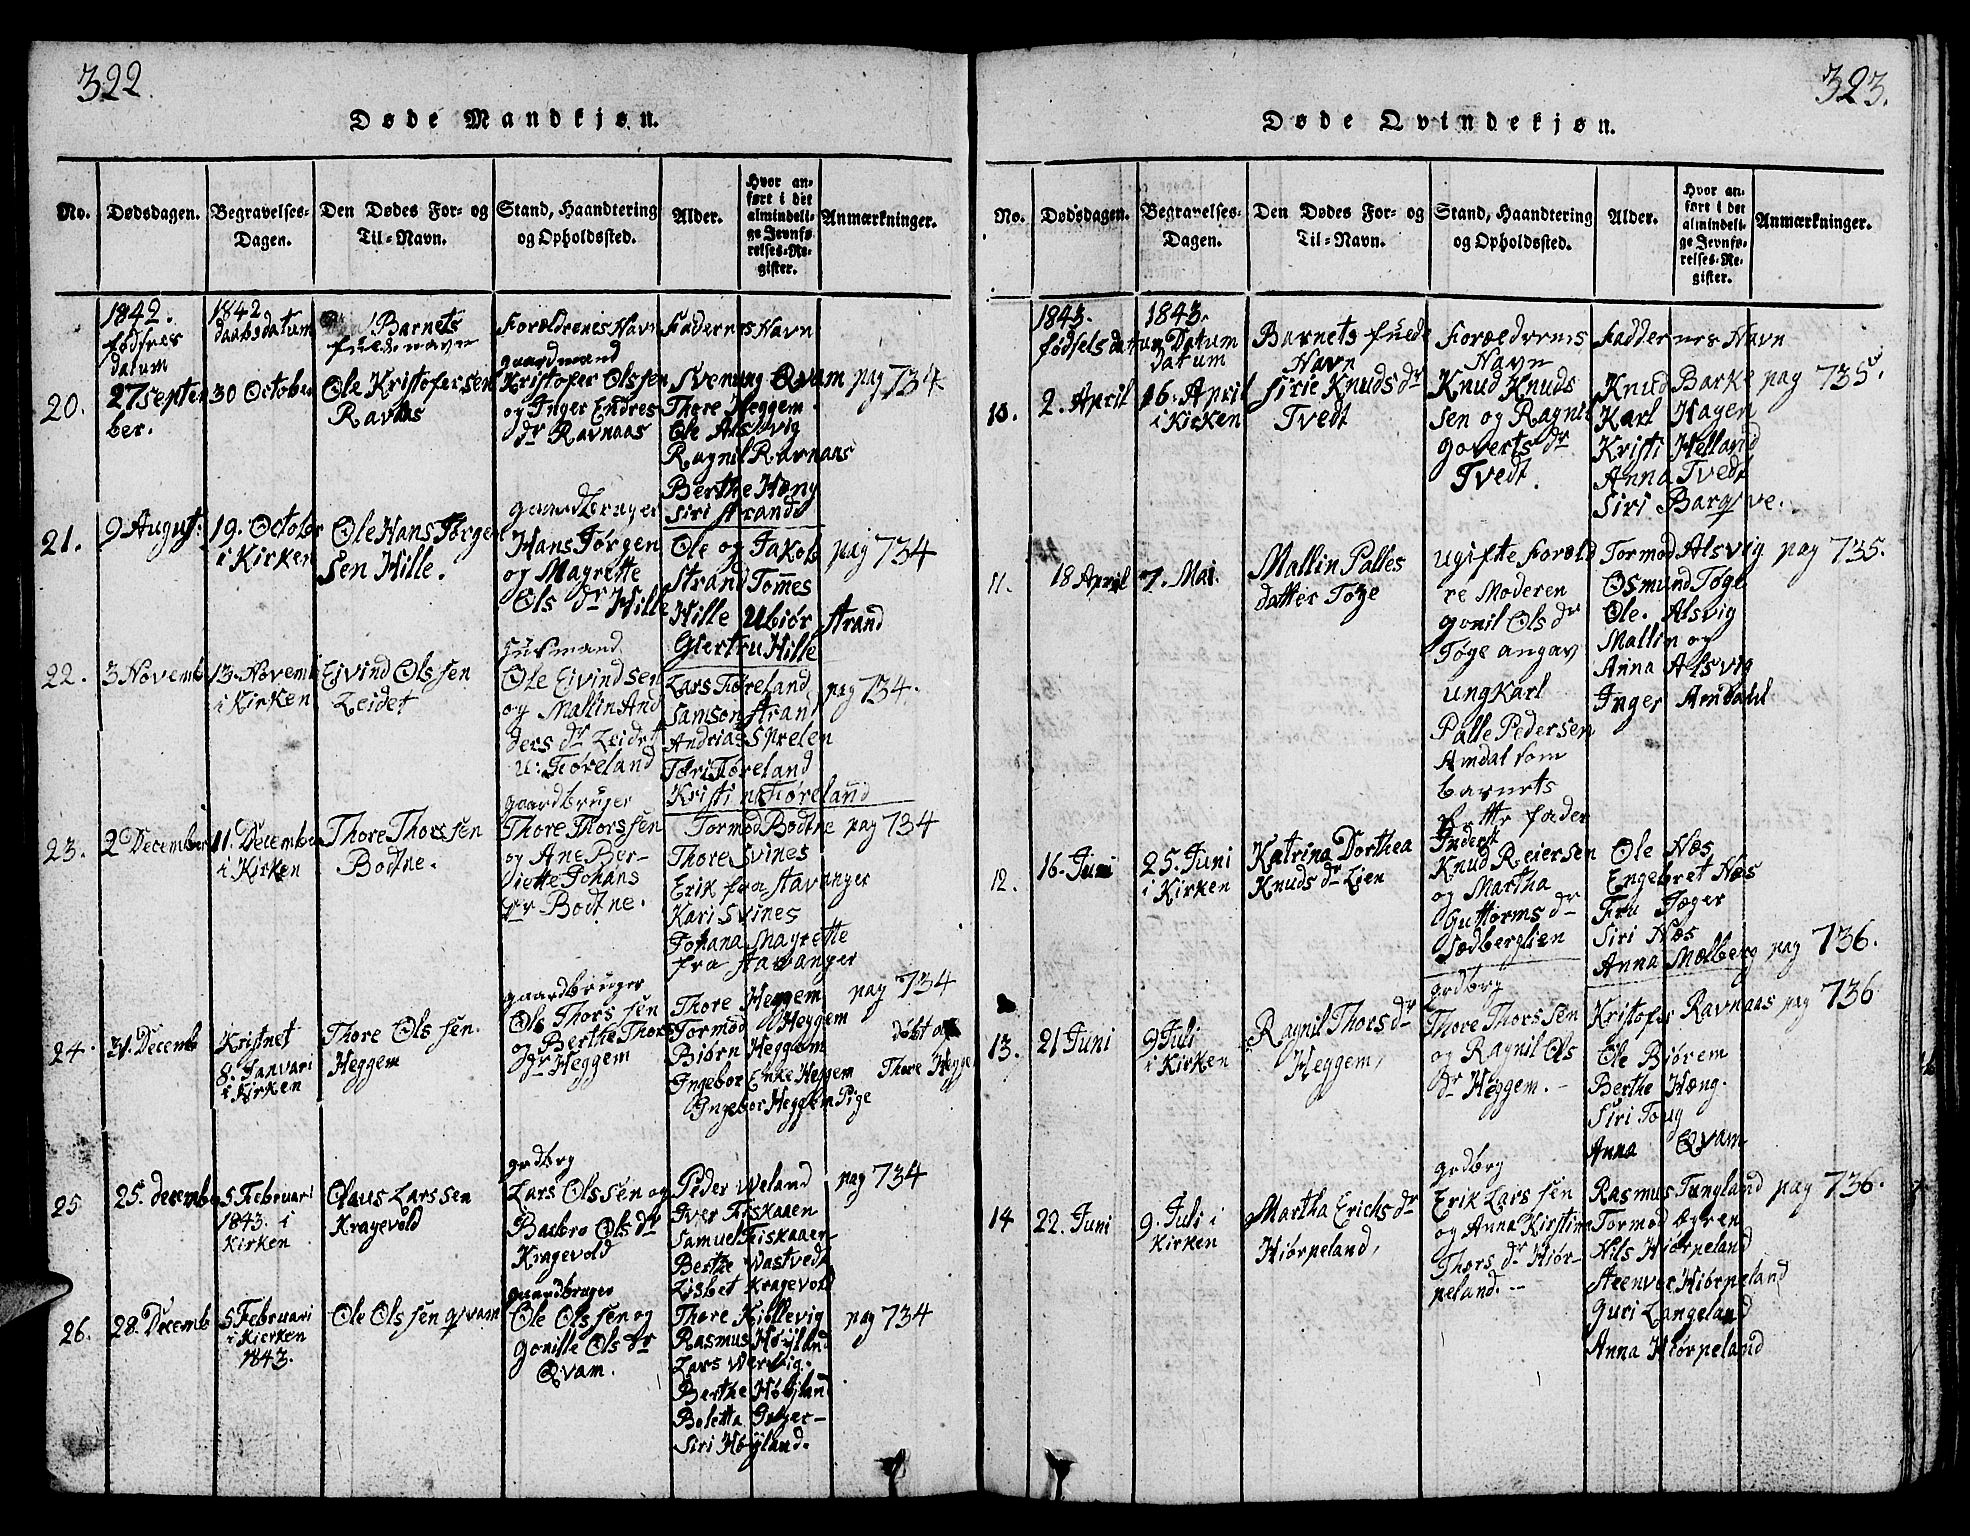 322.
Døde Mandkjøn.
No.
Dødsdagen.
Begravelses-
Dagen.
Den Dødes For- og
Til-Navn.
Stand, Haandtering
og Opholdssted.
Alder.
Hvor an-
ført i det
almindeli-
ge Jevnfø-
relses-Re-
gister.
Anmærkninger.
1842.
fødsels
datum
1842
daabsdatum
Barnets
fulde navn
Forældrenes Navn
Faddernes Navn
20.
27 septem
ber.
30 October
Ole Kristofersen
Ravnas
gaardmand
Kristofer Olssen
og Inger Endres
dr Ravnaas
Svenung Qvam
Thore Heggem
Ole Alsvig
Ragnil Ravnaas
Berthe Hæng
Siri Strand
pag 734
21.
9 August:
19. October
i Kirken
Ole Hans Jørgen
Sen Hille.
gaardbruger
Hans Jørgen
og Magrette
Ols dr Hille
Ole og Jakob
Strand Tomes
Hille Ubiør Strand
Giertru Hille
pag 734
22.
3 Novemb
13. Novemb
i Kirken
Eivind Olssen
Leidet
Husmand
Ole Eivindsen
og Mallin And
ders dr Leidet
u: Fiøreland
Lars Fiøreland
Samson Stran
Andrias Sprelen
Tøri Fiøreland
Kristi n: Fiøreland
pag 734.
23.
2 December
11. December
i Kirken
Thore Thorssen
Bodtne.
gaardbruger
Thore Thorssen
og Ane Ber-
iette Johans
dr Bodtne.
Tormod Bodtne
Thore Svines
Erik fra Stavanger
Kari Svines
Johana Magrette
fra Stavanger
pag 734
24.
31. Decemb
Kristnet
8. Januari
i Kirken
Thore Olssen.
Heggem
gaardbruger
Ols Thorssen
og Berthe Thors
dr Heggem
Thore Heggem
Tormod Heggem
Biørn Heggem
Ingebor Enke Heggem
Ingebor Heggem Pige
pag 734
døbt af
Thore Hegge
25
25. december
5 Februari
1843. i
Kirken
Olaus Larssen
Kragevold
grdbrg
Lars Olssen og
Barbro Ols dr
Kragevold
Peder Weland
Iver Fiskaaen
Samuel Fiskaaen
Berthe Wastvedt
Lisbet Kragevold
pag 734
26.
28. Decemb
5 Februari
i Kierken
1843.
Ole Olssen Qvam
gaardbruger
Ole Olssen og
Gonille Ols dr
Qvam.
Thore Kiøllevig
Rasmus Høyland
Lars Wervig.
Berthe Høyland
Boletta
Siri Høyland.
pag 734
323.
Døde Qvindekjøn.
No.
Dødsdagen.
Begravelses-
Dagen.
Den Dødes For- og
Til-Navn.
Stand, Haandtering
og Opholdssted.
Alder.
Hvor an-
ført i det
almindeli-
ge Jevnfø-
relses-Re-
gister.
Anmærkninger.
1843.
fødsels datum
1843.
Datum
datum
Barnets fulde
Navn
Forældrernes
Navn
Faddernes Navn
10.
2. April
16. April
i Kirken
Sirie Knuds dr
Tvedt
Knud Knuds
sen og Ragnil
Goverts dr
Tvedt.
Knud Barke
Karl Hagen
Kristi Helland
Anna Tvedt
Siri Bargsve.
pag 735.
11.
18 April
7. Mai.
Mallin Palles
datter Tøge
ugifte Foræld
re Moderen
Gonil Ols dr
Tøge angav
ungkarl
Palle Pedersen
Amdal som
barnets
fader
Tormod Alsvig
Osmund Tøge
Ole. Alsvig
Mallin og
Anna Alsvig
Inger Amdahl
pag 735.
12.
16. Juni
25. Juni
i Kirken
Katrina Dorthea
Knuds dr Lien
Inderst
Knud Reiersen
og Martha
Guttorms dr
Sødberglien
Ole Næs
Engebret Næs
Fru Jæger
Siri Næs
Anna Mølberg
pag 736.
13.
21 Juni
9 Juli
i Kirken
Ragnil Thors dr
Heggem,
grdbrg
Thore Thorssen
og Ragnil Ols
dr Heggem. -
Kristofer Ravnaas
Ole Bjørem
Berthe Hæng.
Siri Toug
Anna Qvam
pag 736
14
22. Juni
9. Juli i
Kirken
Martha Erichs dr
Hiørpeland,
grdbrg
Erik Larssen
og Anna Kirstina
Thors dr Hiør-
peland. --
Rasmus Tungland
Tormod Øgren
Nils Hiørpeland
Steenvor Hiørpeland
Guri Langeland
Anna Hiørpeland
pag 736.